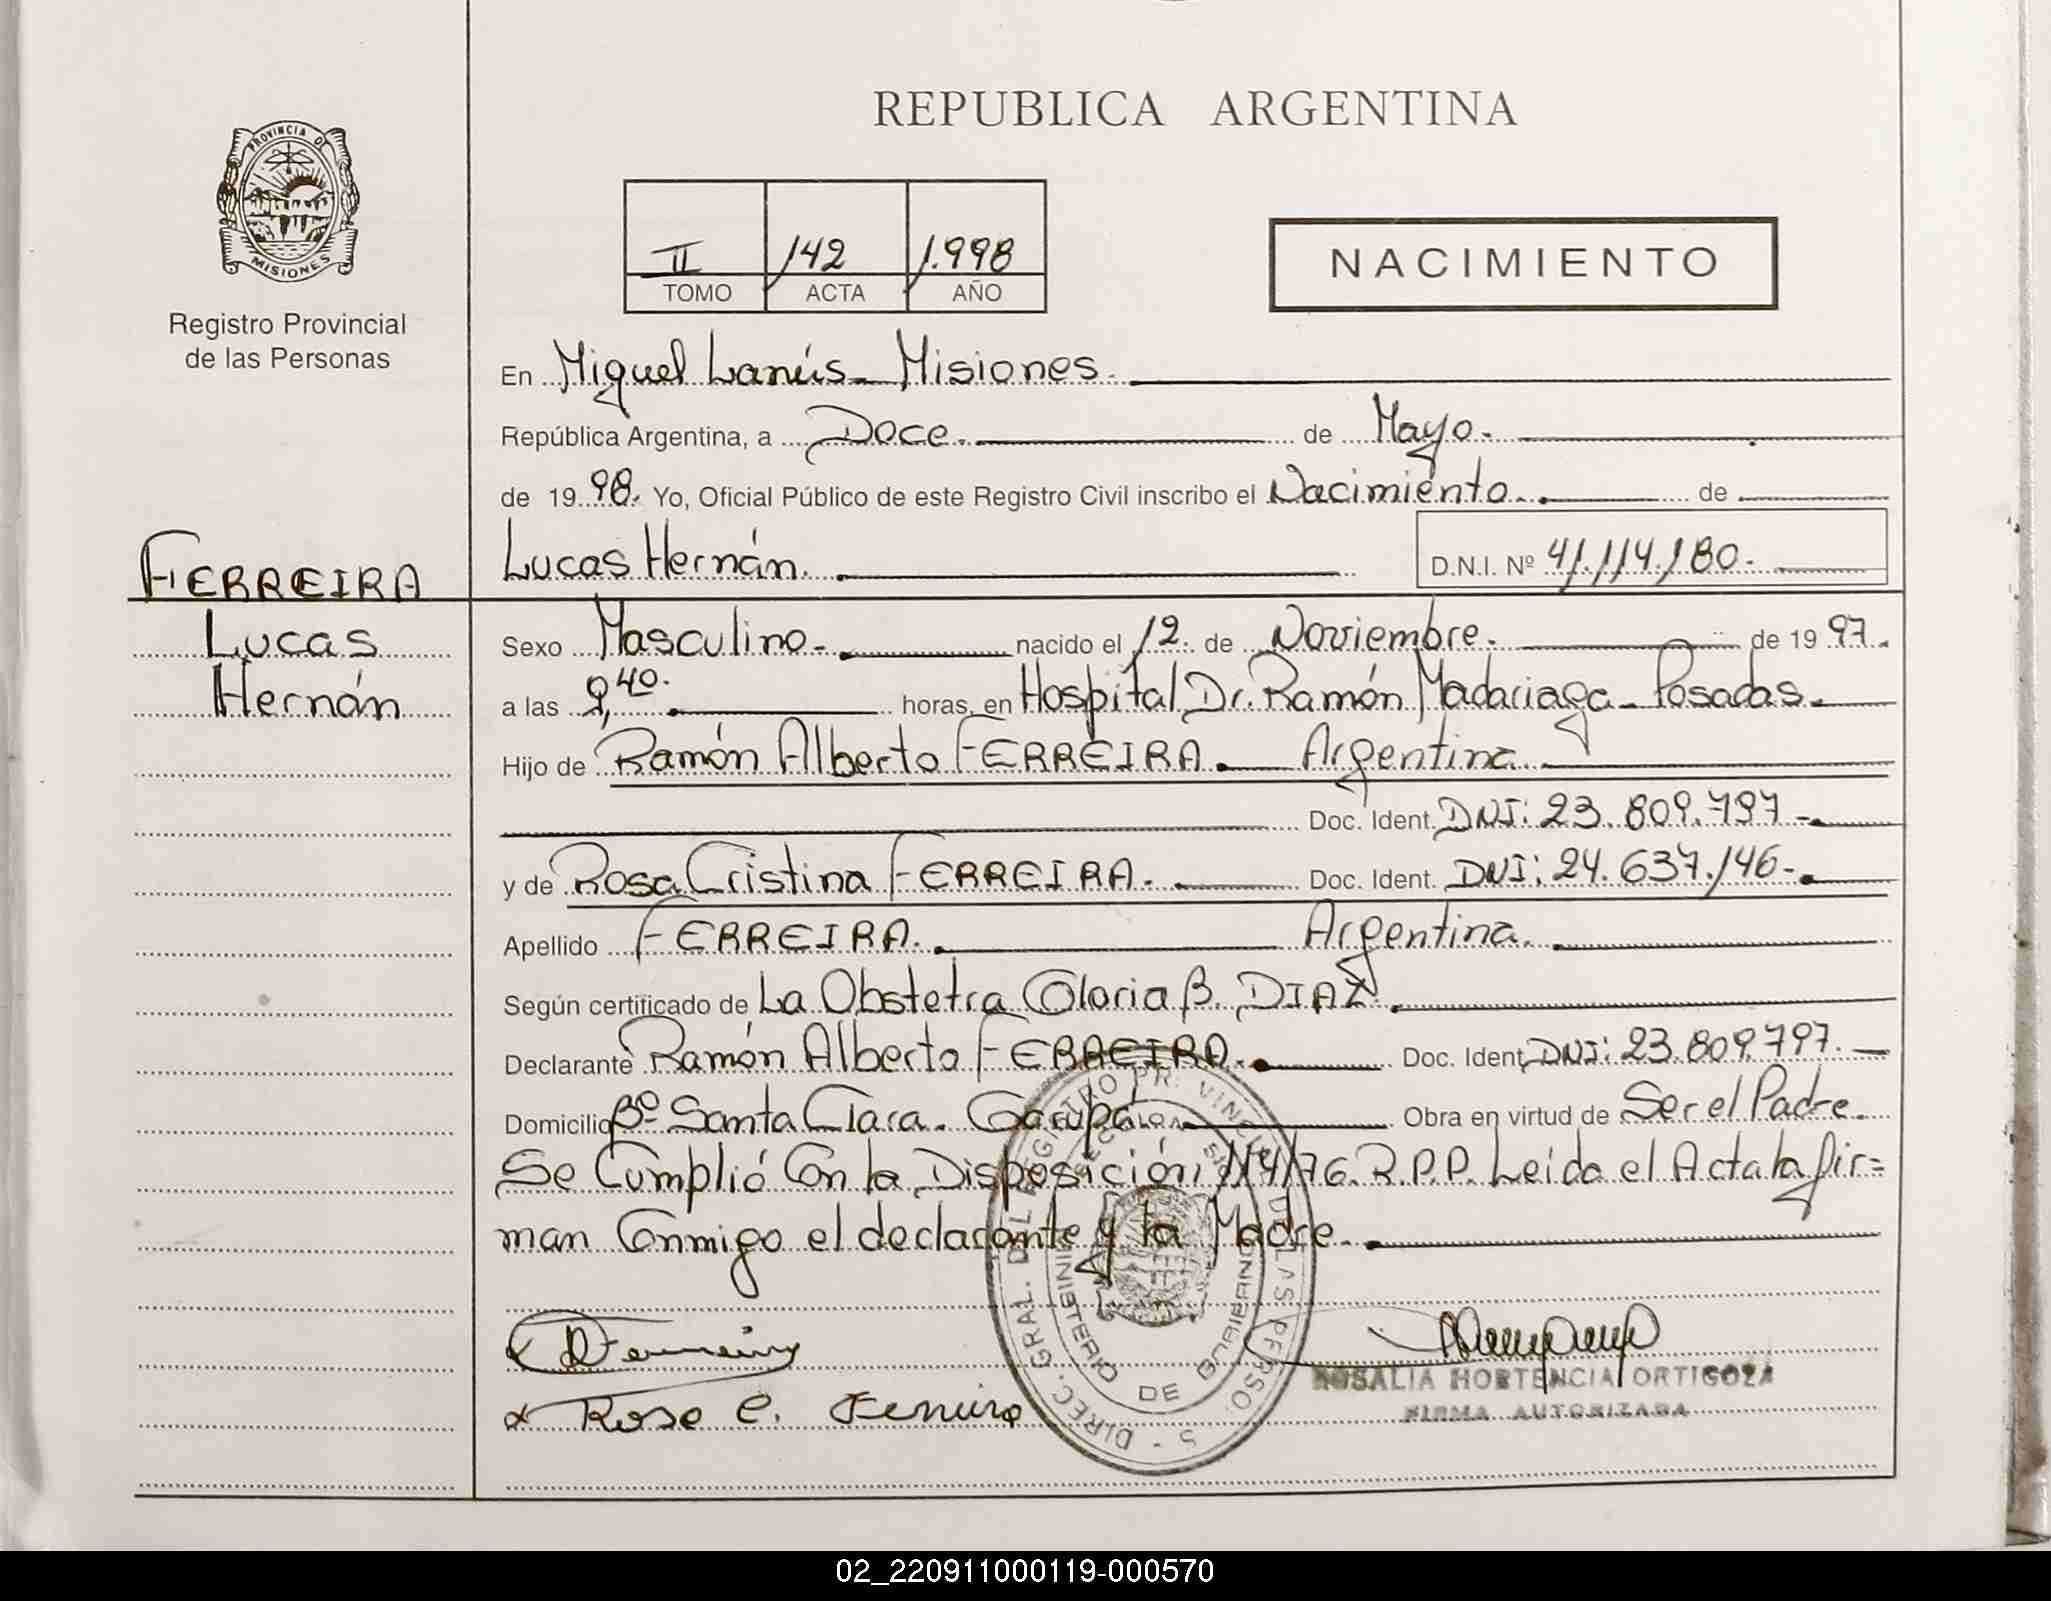 PROVINCIA DE
MISIONES
Registro Provincial
de las Personas
REPUBLICA ARGENTINA
II 142 1.998
TOMO ACTA AÑO
NACIMIENTO
En Miguel Lanús - Misiones.
República Argentina, a Doce. de Mayo.
de 19 98. Yo, Oficial Público de este Registro Civil inscribo el Nacimiento. de
FERREIRA
Lucas Hernán.
D.N.I. Nº 41.114.180.
Lucas
Hernán
Sexo Masculino. nacido el 12. de Noviembre. de 19 97.
a las 9,40. horas, en Hospital Dr. Ramón Madariaga - Posadas.
Hijo de Ramón Alberto FERREIRA. Argentina
Doc. Ident. DNI: 23.809.797-.
y de Rosa Cristina FERREIRA. Doc. Ident. DNI: 24.637.146-.
Apellido FERREIRA. Argentina.
Según certificado de La Obstetra Gloria B. DIAZ.
Declarante Ramón Alberto FERREIRA. Doc. Ident. DNI: 23.809.797.
Domicilio Bº Santa Clara. Garupá. Obra en virtud de Ser el Padre.
Se Cumplió Con la Disposición 114/76. R.P.P. Leída el Acta la fir=
man Conmigo el declarante y la Madre.
Ferreira
Rosa C. Ferreira
ROSALIA HORTENCIA ORTIGOZA
FIRMA AUTORIZADA
DIREC. GRAL. DEL REGISTRO PROVINCIAL DE LAS PERSONAS
MINISTERIO DE GOBIERNO
02_220911000119-000570